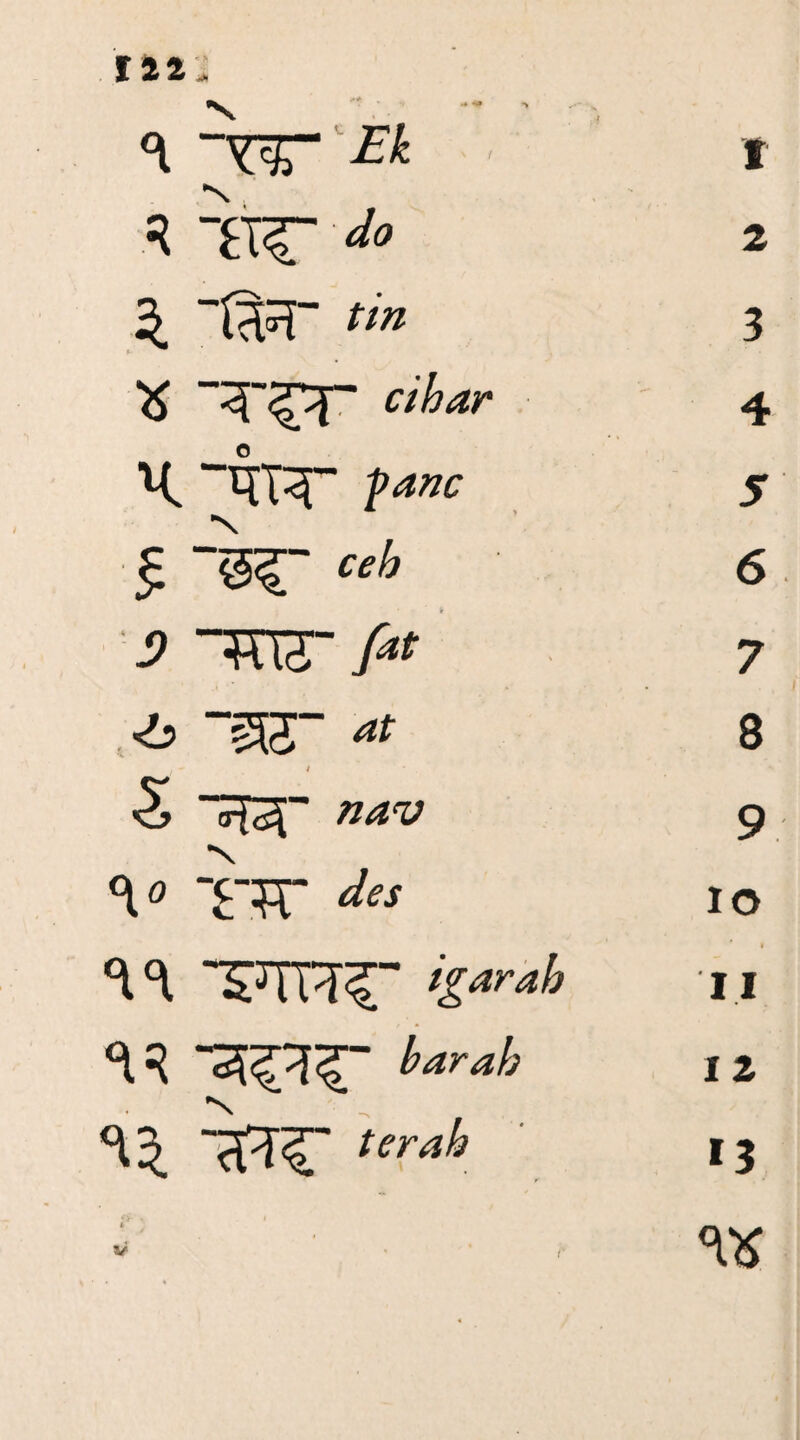 122.
१ ऐक Ek 1
२ दोह do 2
३ तिन tin 3
४ चहर cihar 4
५ पांच panc 5
६ छेह ceh 6
७ सात ſat 7
८ अठ at 8
९ नव nav 9
१० देस des 10
११ इगारह igarah 11
१२ barah 12
१३ तेरह terah 13
१४